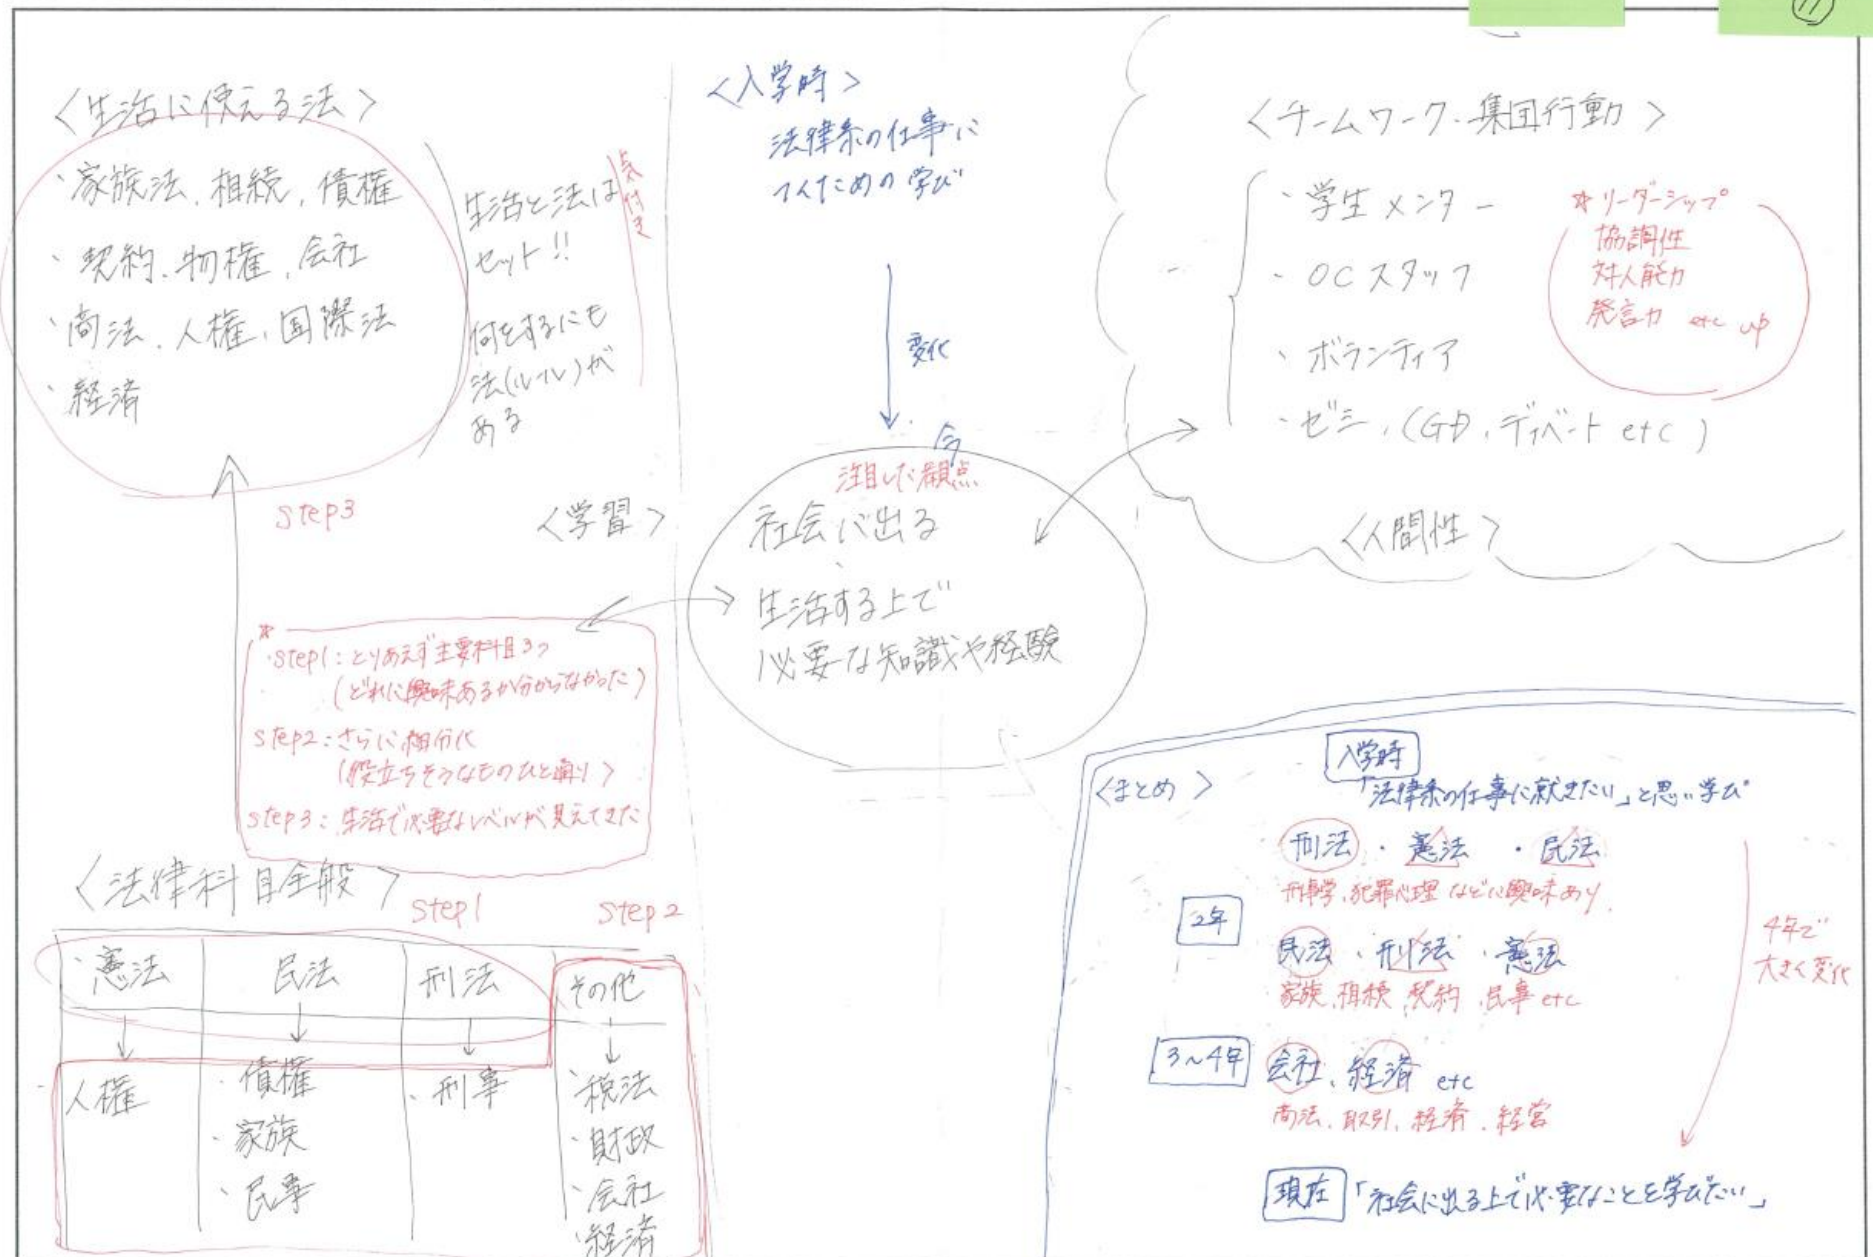 ⑰
〈生活に使える法〉
・家族法、相続、債権
・契約、物権、会社
・商法、人権、国際法
・経済
生活と法は
セット!!
何をするにも
法(ルール)が
ある
気付き
step3
〈学習〉
*
・step1:とりあえず主要科目3つ
(どれに興味あるか分からなかった)
step2:さらに細分化
(役立ちそうなものひと通り)
step3:生活で必要なレベルが見えてきた
〈法律科目全般〉
step1
step2
・憲法
民法
刑法
その他
人権
・債権
・家族
・民事
・刑事
・税法
・財政
・会社
・経済
〈入学時〉
法律系の仕事に
つくための学び
変化
今
注目した観点
社会に出る
、
生活する上で
必要な知識や経験
〈チームワーク・集団行動〉
・学生メンター
・OCスタッフ
・ボランティア
・ゼミ、(GD、ディベート etc)
*リーダーシップ
協調性
対人能力
発言力 etc up
〈人間性〉
〈まとめ〉
入学時
「法律系の仕事に就きたい」と思い学び
刑法・憲法・民法
刑事学、犯罪心理などに興味あり
2年
民法・刑法・憲法
家族、相続、契約、民事etc
3~4年
会社、経済 etc
商法、取引、経済、経営
4年で
大きく変化
現在
「社会に出る上で必要なことを学びたい」